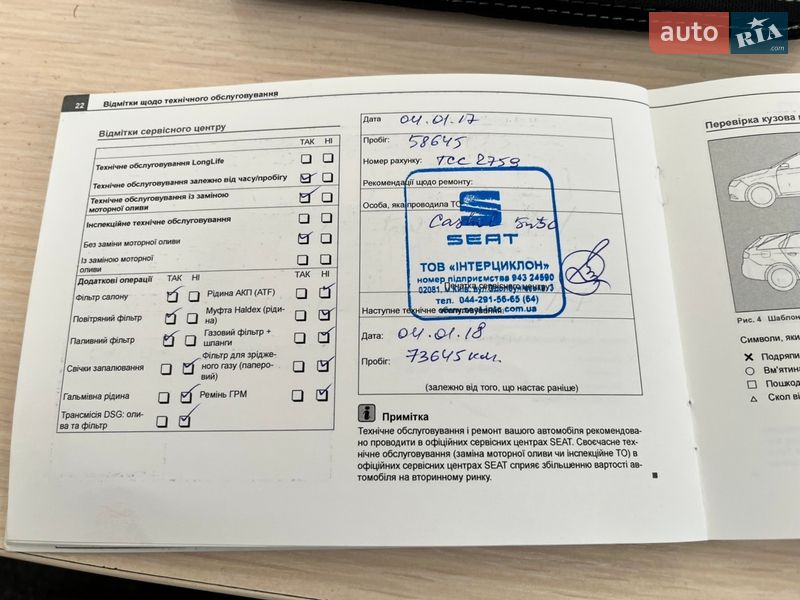 auto RIA .com
22 Відмітки щодо технічного обслуговування
Відмітки сервісного центру
ТАК НІ
Технічне обслуговування LongLife
Технічне обслуговування залежно від часу/пробігу
Технічне обслуговування із заміною
моторної оливи
Інспекційне технічне обслуговування
Без заміни моторної оливи
Із заміною моторної
оливи
Додаткові операції ТАК НІ ТАК НІ
Фільтр салону
Рідина АКП (ATF)
Повітряний фільтр
Муфта Haldex (ріди-
на)
Паливний фільтр
Газовий фільтр +
шланги
Свічки запалювання
Фільтр для зрідже-
ного газу (паперо-
вий)
Гальмівна рідина
Ремінь ГРМ
Трансмісія DSG: оли-
ва та фільтр
Дата 04.01.17
Пробіг: 58645
Номер рахунку: ТСС 2759
Рекомендації щодо ремонту:
Особа, яка проводила ТО
5w30
SEAT
ТОВ «ІНТЕРЦИКЛОН»
номер підприємства 943 24590
Печатка сервісного центру
02081, м.Київ, вул.
тел. 044-291-56-65 (64)
Наступне технічне обслуговування:
Дата: 04.01.18
Пробіг: 73645 км.
(залежно від того, що настає раніше)
i Примітка
Технічне обслуговування і ремонт вашого автомобіля рекомендова-
но проводити в офіційних сервісних центрах SEAT. Своєчасне тех-
нічне обслуговування (заміна моторної оливи чи інспекційне ТО) в
офіційних сервісних центрах SEAT сприяє збільшенню вартості ав-
томобіля на вторинному ринку.
Перевірка кузова
Рис. 4 Шаблон
Символи, які
Подряпи
Вм'ятина
Пошкод
Скол ві